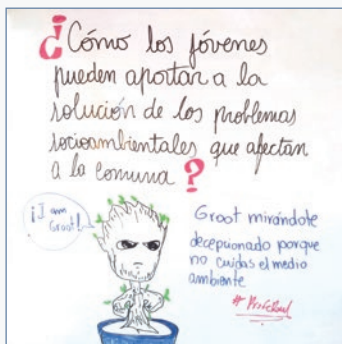 ¿Cómo los jóvenes
pueden aportar a la
solución de los problemas
socioambientales que afectan
a la comuna?
¡I am
Groot!
Groot mirándote
decepcionado porque
no cuidas el medio
ambiente